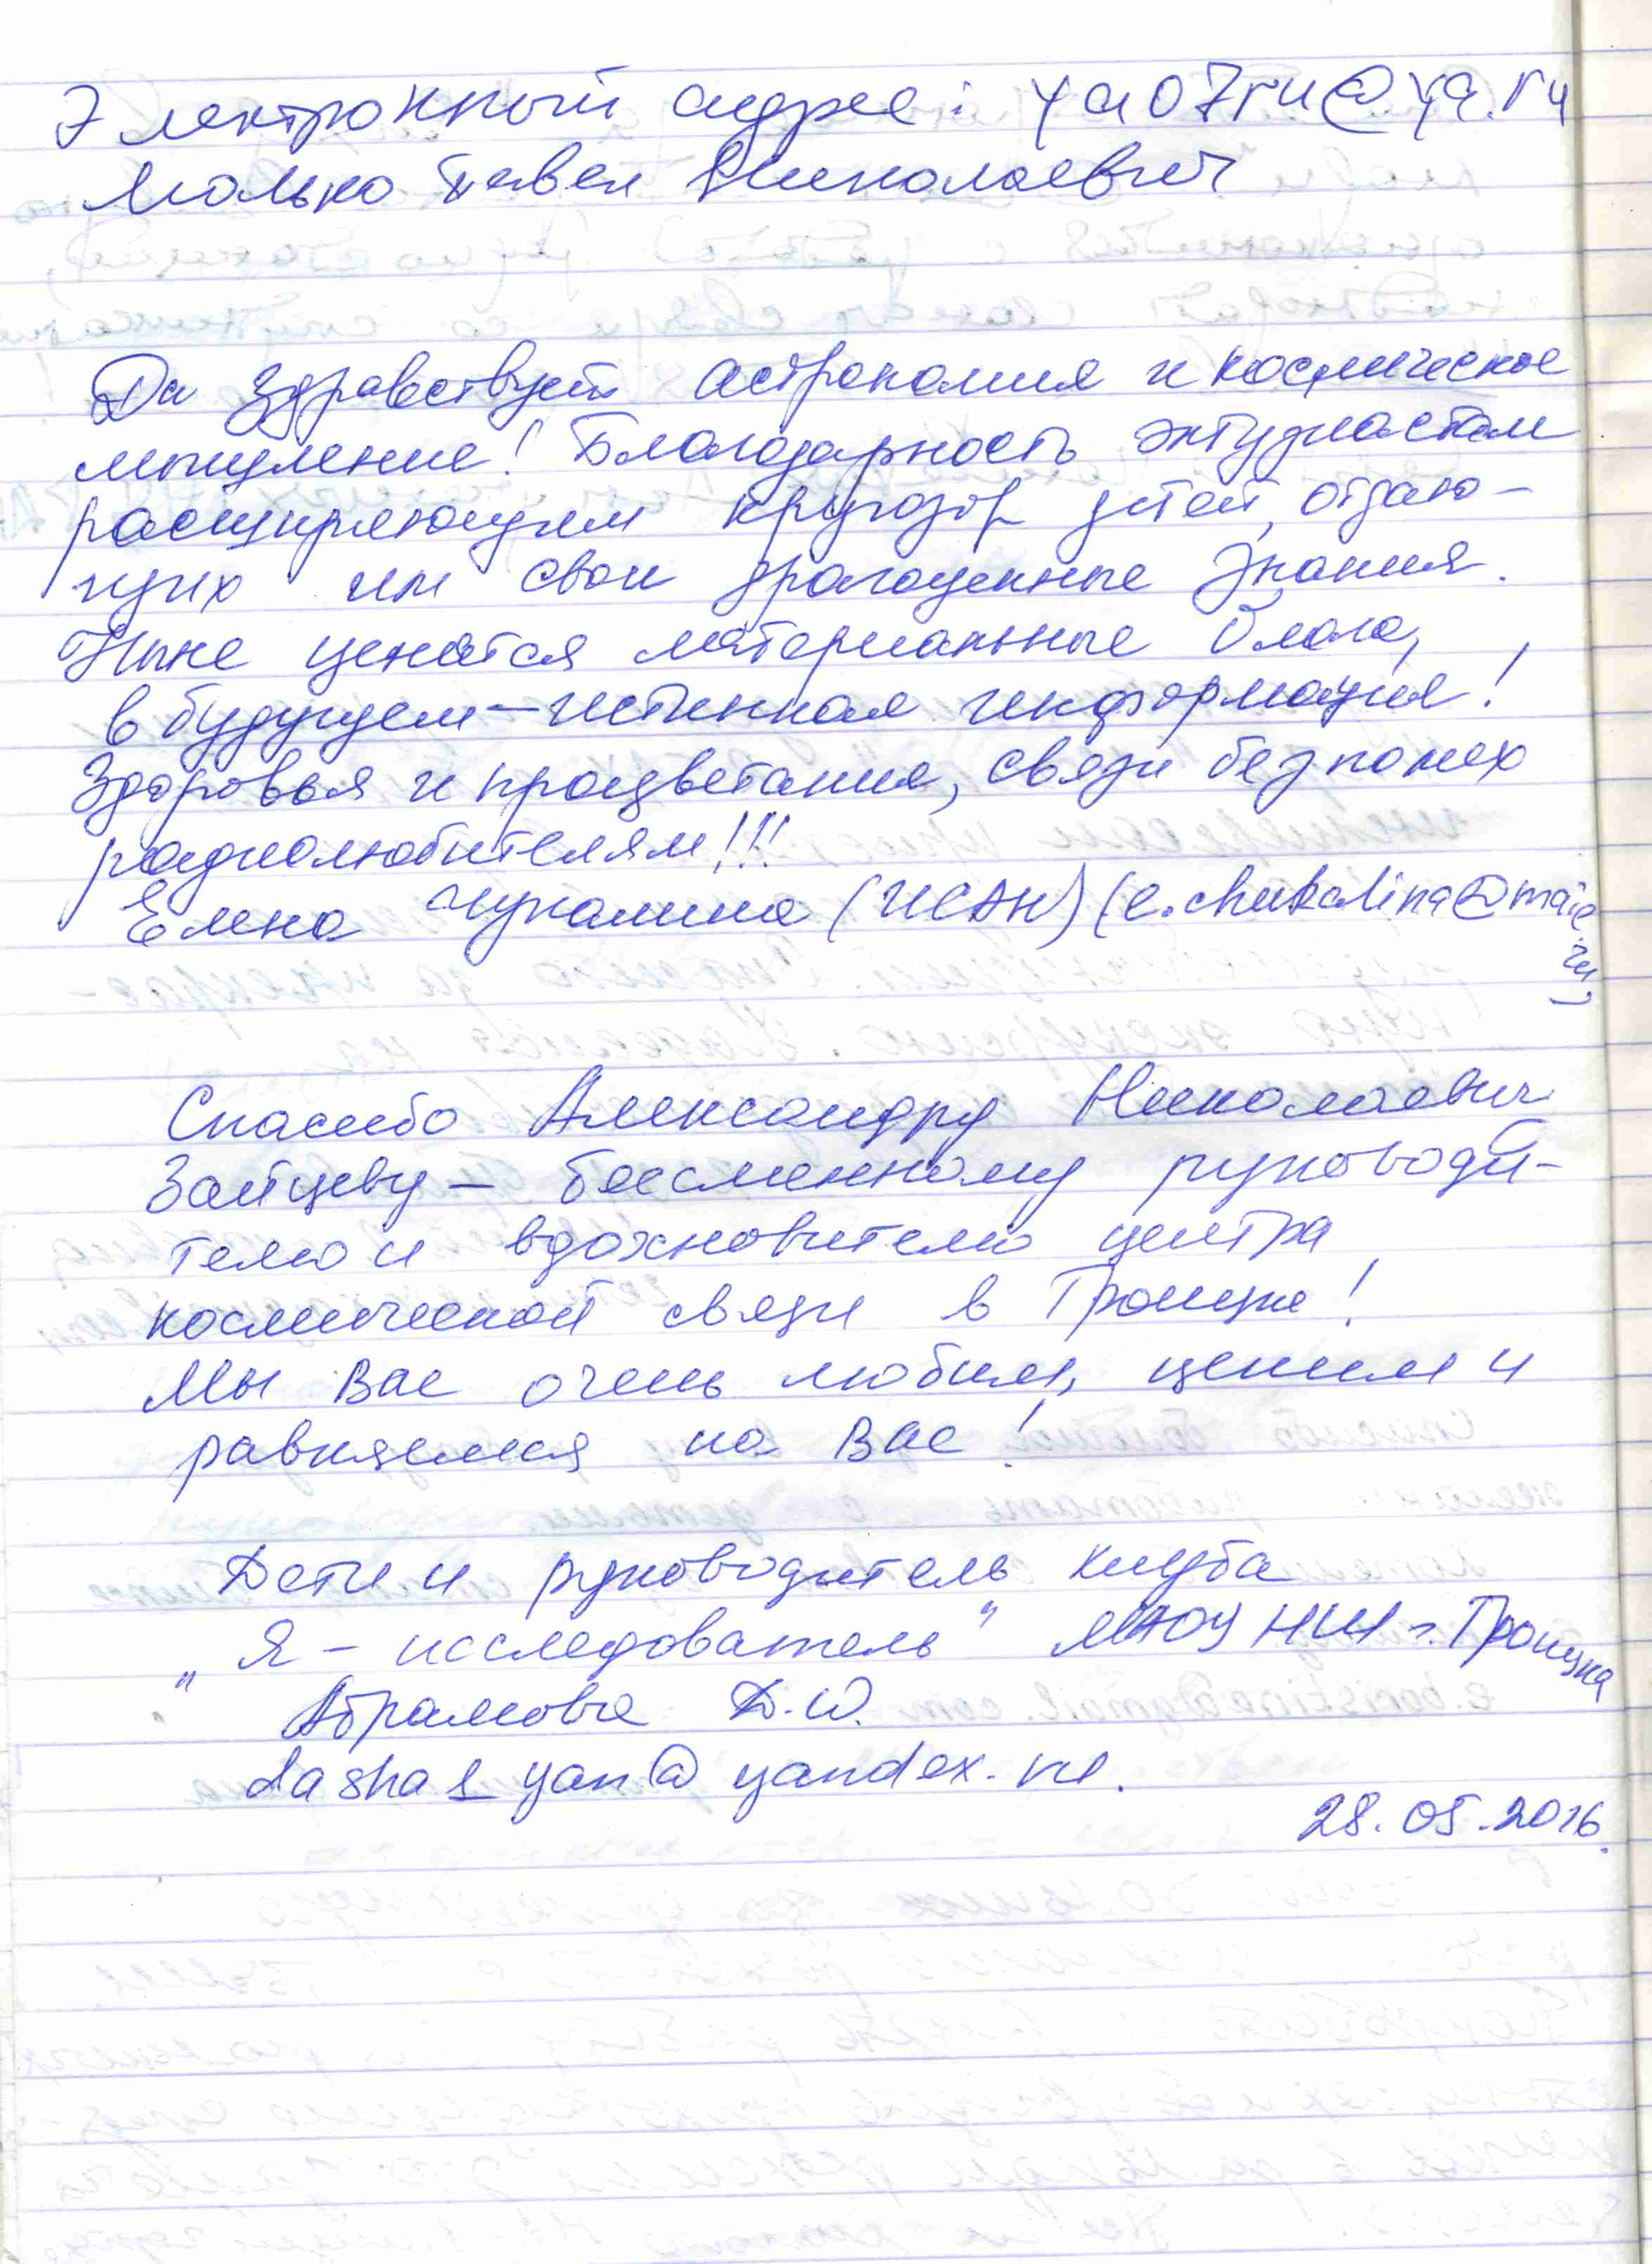 Электронный адрес: ya07ru@ya.ru
Малько Павел Николаевич
Да здравствует астрономия и космическое
мышление! Благодарность энтузиастам
расширяющим кругозор детей, отдаю-
щих им свои драгоценные знания.
Ныне ценятся материальные блага,
в будущем – истинная информация!
Здоровья и процветания, связи без помех
радиолюбителям!!!
Елена Чукалина (ИСАН) (e.chukalina@mail.ru)
Спасибо Александру Николаевич
Зайцеву – бессменному руководи-
телю и вдохновителю центра
космической связи в Троицке!
Мы Вас очень любим, ценим и
равняемся на Вас!
Дети и руководитель клуба
„Я – исследователь" МАОУ НШ г. Троицка
Абрамова Д.Ю.
dasha1_yan@yandex.ru.
28.05.2016.